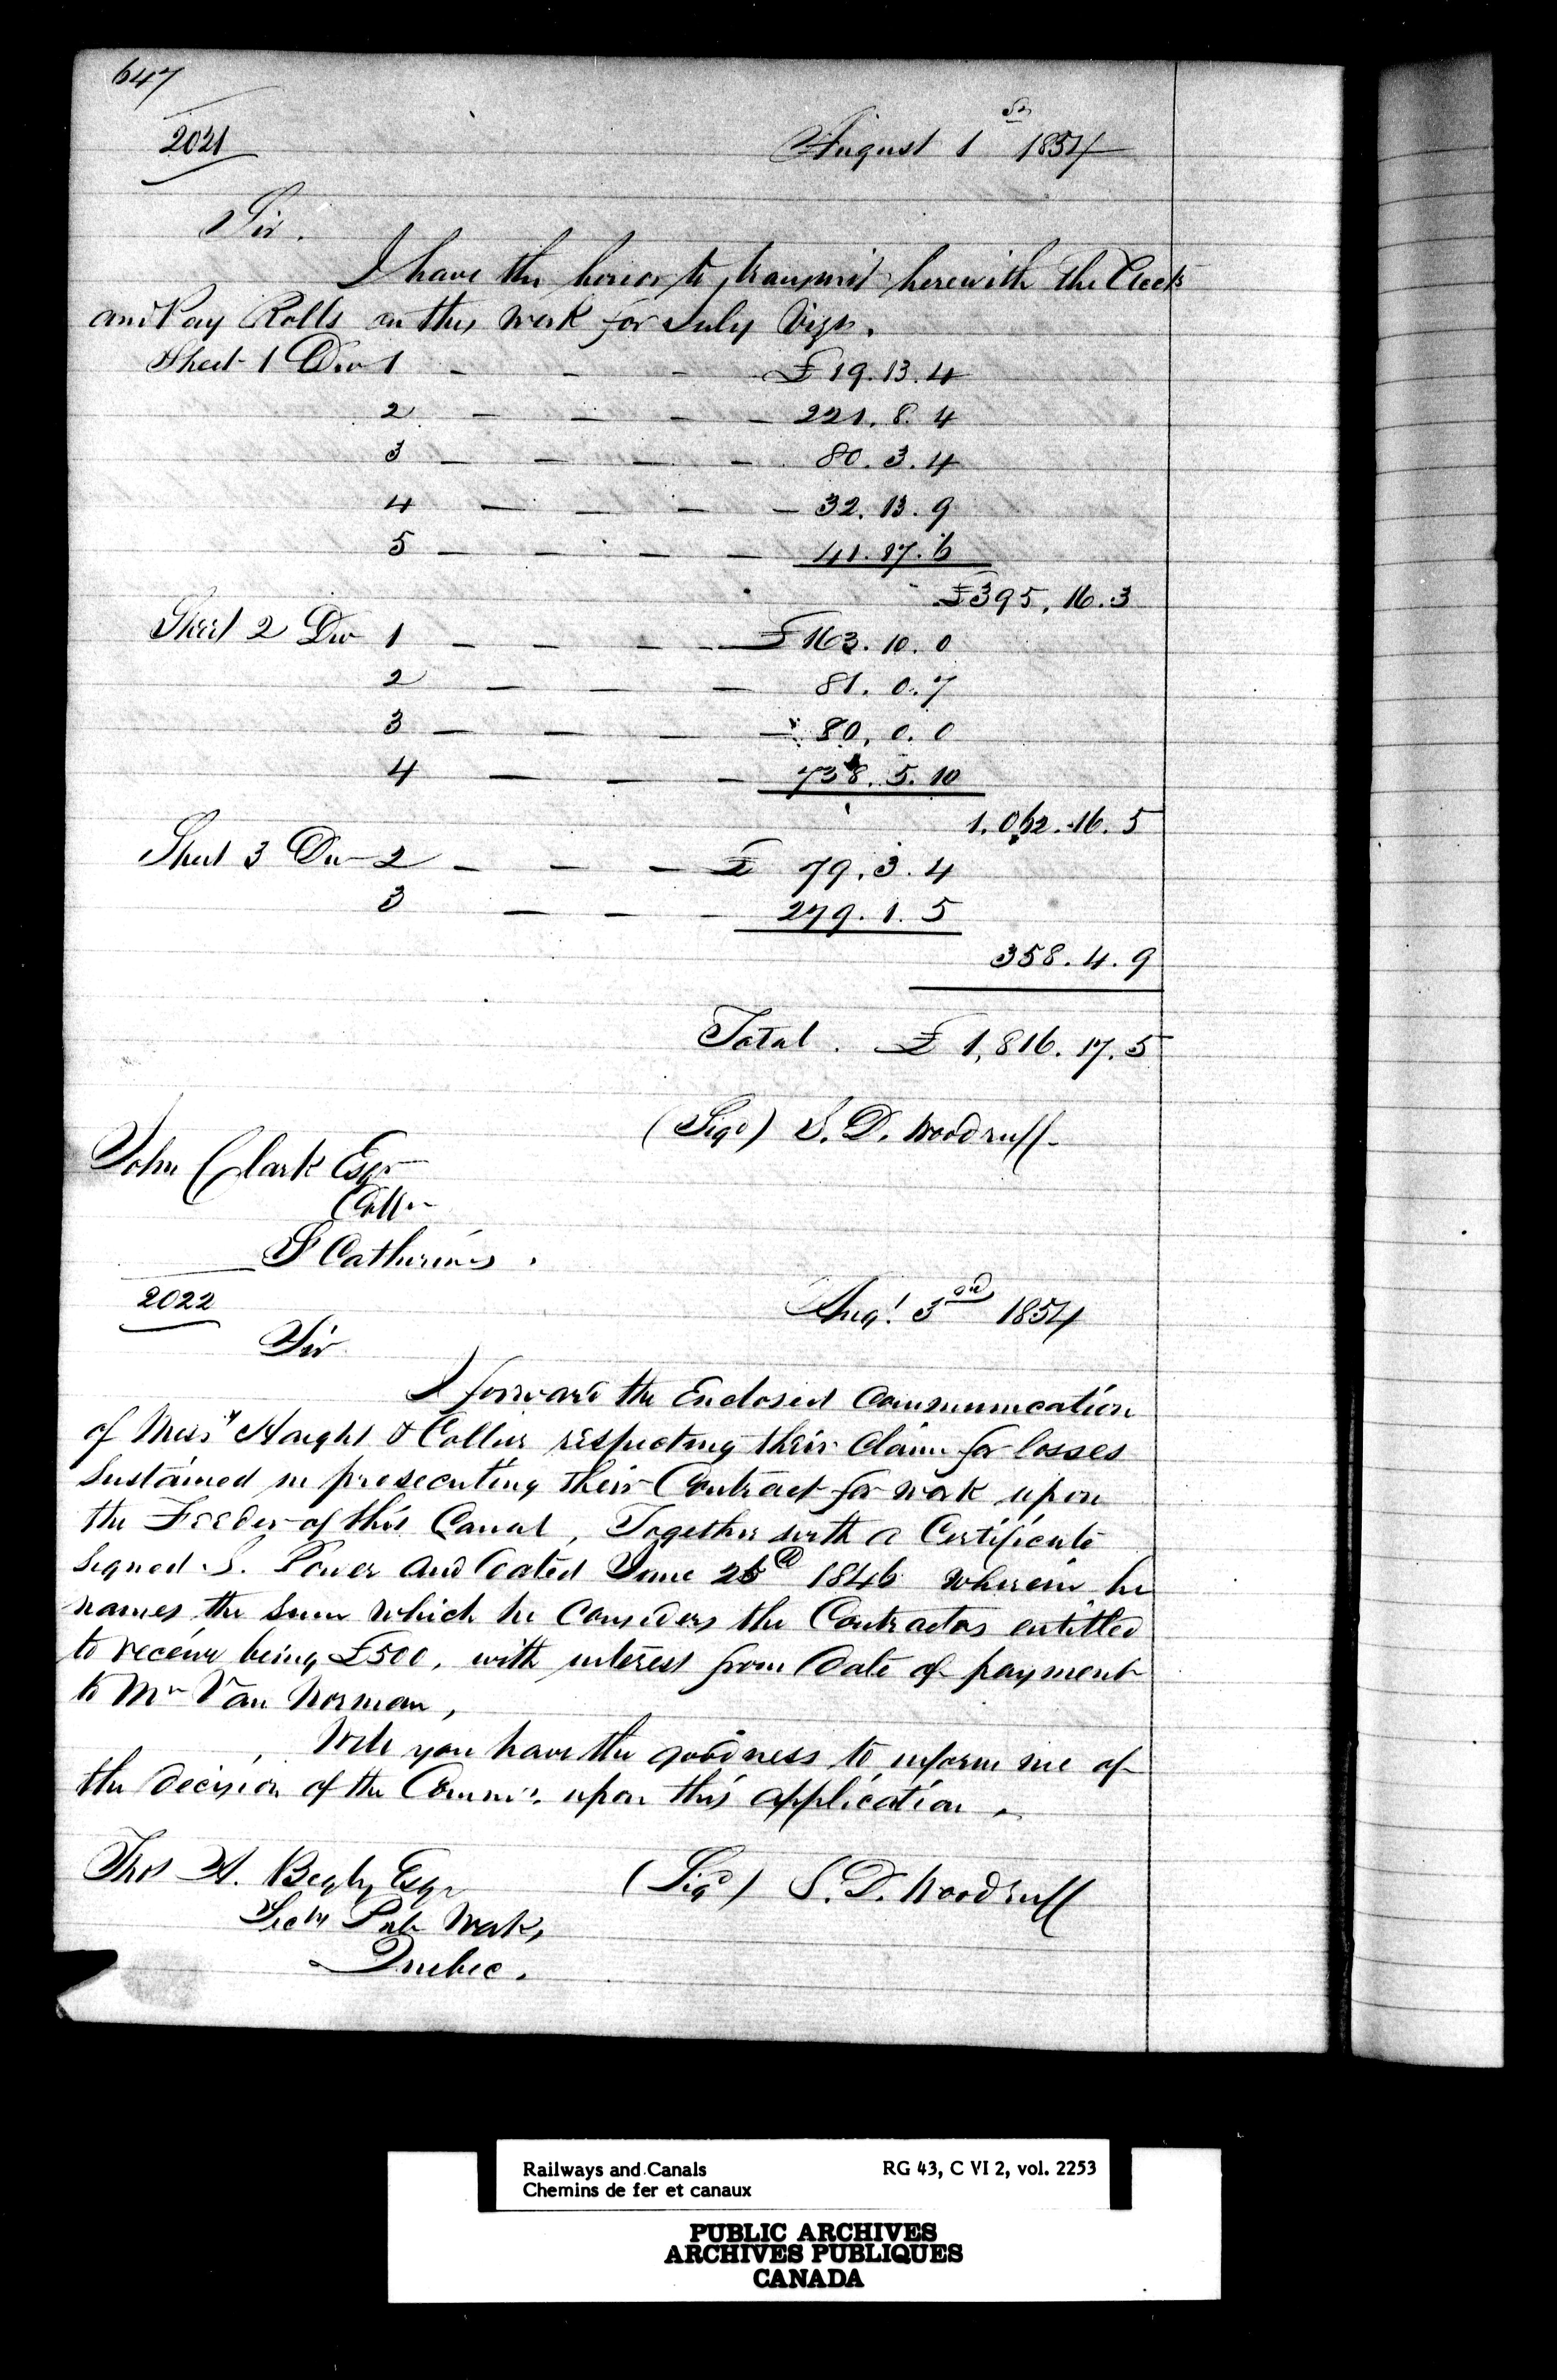 647
2021
August 1st 1854
Sir.
I have the honor to transmit herewith the
and Pay Rolls on this work for July Vizt.
Sheet 1 Div 1 - - - £19.13.4
2 - - - - 221.8.4
3 - - - - 80.3.4
4 - - - - 32.13.9
5 - - - - 41.17.6
£395,16.3
Sheet 2 Div 1 - - - - £163.10.0
2 - - - 81.0.7
3 - - - - 80,0.0
4 - - - 738.5.10
1,062.16.5
Sheet 3 Div 2 - - - £ 79.3.4
3 - - - 279.1.5
358.4.9
Total. £1,816.17.5
(Sigd) S. D. Woodruff
John Clark Esqr
Collr
St Catherines.
2022
Augt 3rd 1854
Sir
I forward the Enclosed Communication
of Messrs Haight & Collier respecting their Claim for losses
Sustained in prosecuting their Contract for work upon
the Feeder of this Canal, Together with a Certificate
Signed S. Power and dated June 26th 1846 wherein he
names the sum which he Considers the Contractors entitled
to receive being £500, with interest from date of payment
to Mr Van Norman,
Will you have the goodness to inform me of
the decision of the Commrs. upon this application.
Thos A. Begly Esqr
Secty Pub Works,
Quebec.
(Sigd) S. D. Woodruff
Railways and Canals
Chemins de fer et canaux
RG 43, C VI 2, vol. 2253
PUBLIC ARCHIVES
ARCHIVES PUBLIQUES
CANADA